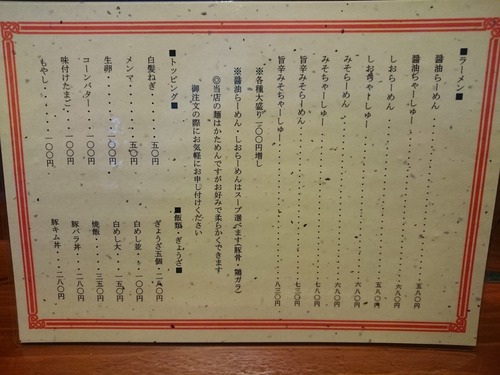 ■ラーメン■
醤油らーめん・・・五八〇円
醤油ちゃーしゅー・・・六八〇円
しおらーめん・・・五八〇円
しおちゃーしゅー・・・六八〇円
みそらーめん・・・六八〇円
みそちゃーしゅー・・・七八〇円
旨辛みそらーめん・・・七三〇円
旨辛みそちゃーしゅー・・・八三〇円
※各種大盛り一〇〇円増し
※醤油らーめん・しおらーめんはスープ選べます(豚骨・鶏ガラ)
◎当店の麺はかためんですがお好みで柔らかくできます
御注文の際にお気軽にお申し付けください
■トッピング■
白髪ねぎ・・・五〇円
メンマ・・・五〇円
生卵・・・
コーンバター・・・一〇〇円
味付けたまご・・・一〇〇円
もやし・・・一〇〇円
■飯類・ぎょうざ■
ぎょうざ五個・二八〇円
白めし並・・一〇〇円
白めし大・・一五〇円
焼飯・・・三五〇円
豚バラ丼・・二八〇円
豚キム丼・・二八〇円